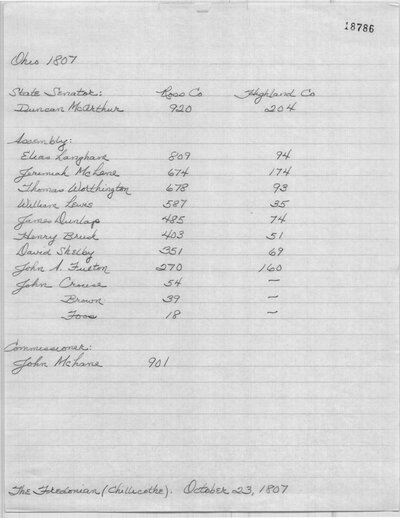 18786
Ohio 1807
State Senator: Ross Co Highland Co
Duncan McArthur 920 204
Assembly:
Elias Langham 809 94
Jeremiah McLene 674 174
Thomas Worthington 678 93
William Lewis 587 35
James Dunlap 485 74
Henry Brush 403 51
David Shelby 351 69
John A. Fulton 270 160
John Crouse 54 —
Brown 39 —
Foos 18 —
Commissioner:
John McLane 901
The Fredonian (Chillicothe). October 23, 1807